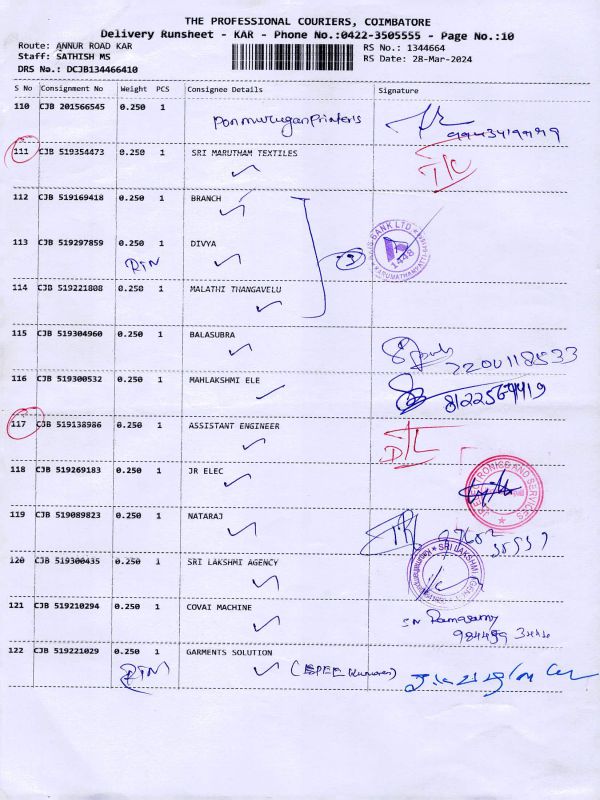 THE PROFESSIONAL COURIERS, COIMBATORE
Delivery Runsheet - KAR - Phone No.:0422-3505555 - Page No.:10
Route: ANNUR ROAD KAR RS No.: 1344664
Staff: SATHISH MS RS Date: 28-Mar-2024
DRS No.: DCJB134466410
S No Consignment No Weight PCS Consignee Details Signature
110 CJB 201566545 0.250 1 Ponmurugan Printers
111 CJB 519354473 0.250 1 SRI MARUTHAM TEXTILES
112 CJB 519169418 0.250 1 BRANCH
113 CJB 519297859 0.250 1 DIVYA
RTN 3 1448
114 CJB 519221808 0.250 1 MALATHI THANGAVELU
115 CJB 519304960 0.250 1 BALASUBRA
116 CJB 519300532 0.250 1 MAHLAKSHMI ELE
117 CJB 519138986 0.250 1 ASSISTANT ENGINEER
118 CJB 519269183 0.250 1 JR ELEC
119 CJB 519089823 0.250 1 NATARAJ
120 CJB 519300435 0.250 1 SRI LAKSHMI AGENCY
121 CJB 519210294 0.250 1 COVAI MACHINE
122 CJB 519221029 0.250 1 GARMENTS SOLUTION
RTN